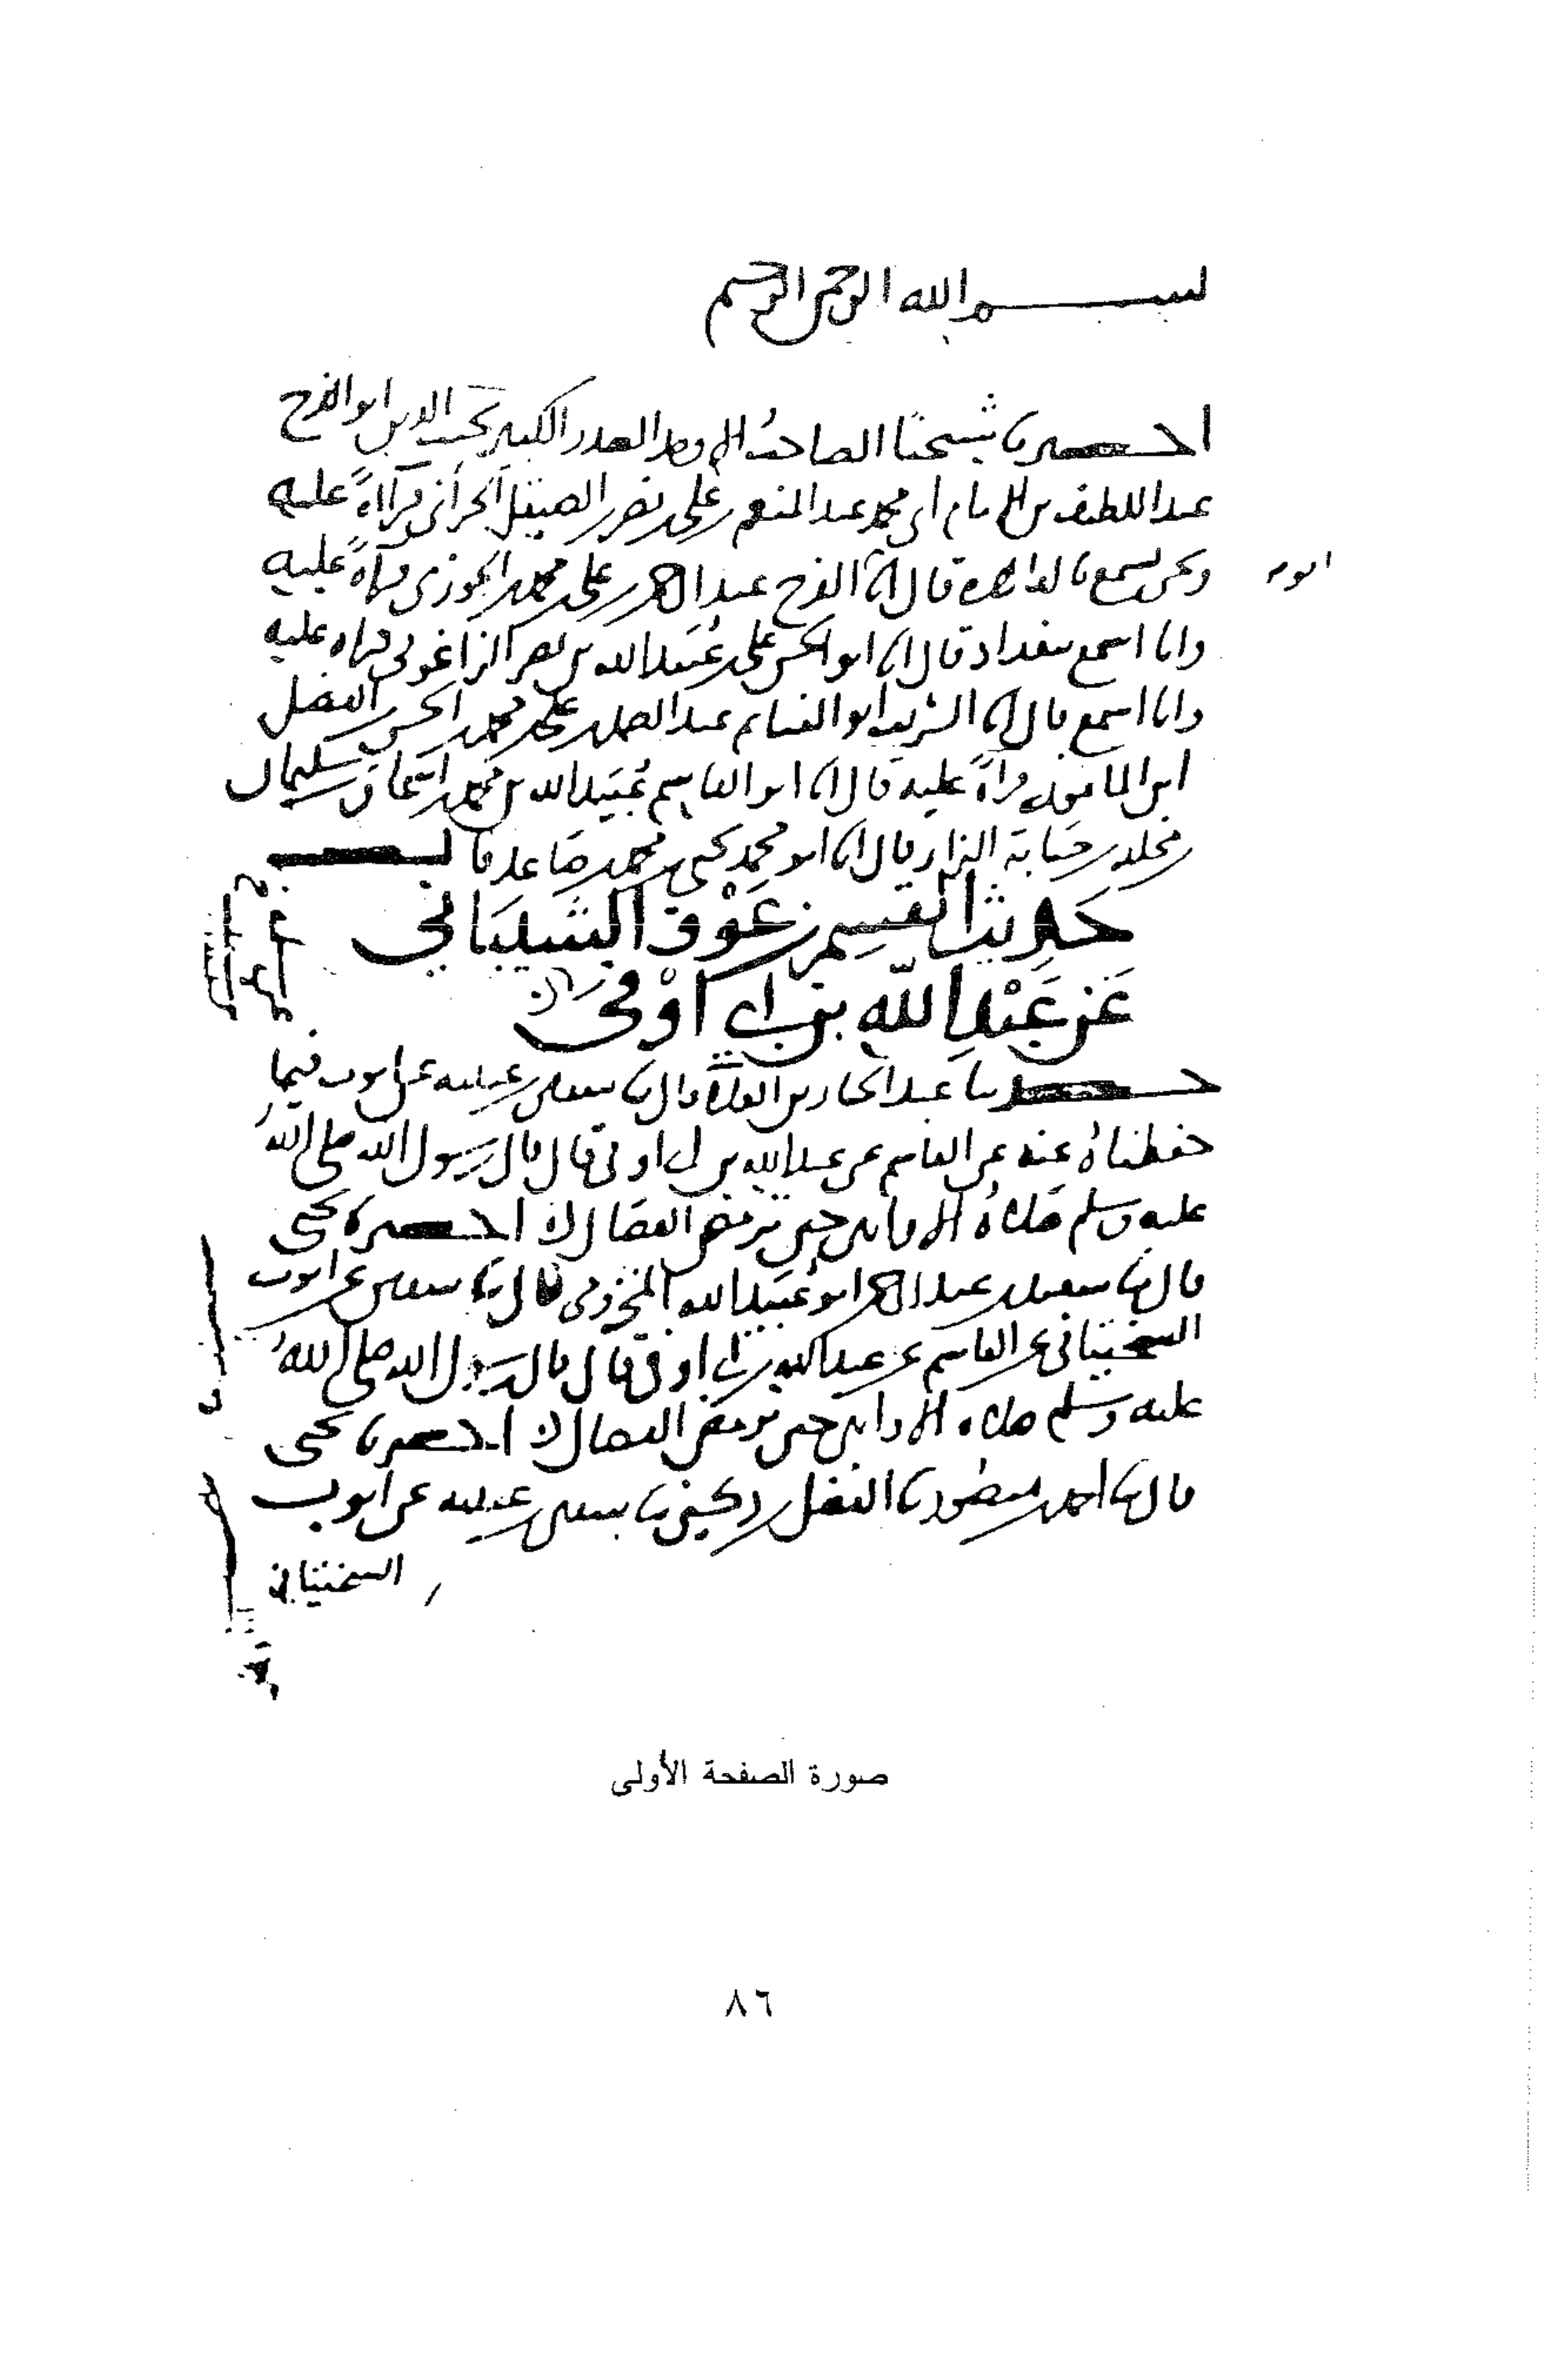 بسم الله الرحمن الرحيم
اخبرنا شيخنا الصاحب الصدر الكبير نجيب الدين ابو الفرج
عبد اللطيف بن الامام ابي محمد عبد المنعم بن علي بن نصر بن الصيقل الحراني قراءةً عليه
ونحن نسمع بالقاهرة قال انا الفرج عبد الرحمن بن علي بن محمد بن الجوزي قراءةً عليه
ابو
وانا اسمع ببغداد قال انا ابو الحسن علي بن عُبَيد الله بن نصر الزاغوني قراءة عليه
وانا اسمع قال انا الشريف ابو الغنايم عبد الصمد بن علي بن محمد بن الحسن بن الفضل
ابن المامون قراءةً عليه قال انا ابو القاسم عُبَيد الله بن محمد بن اسحاق بن سليمان
بن مخلد بن حَبَابة البزار قال انا ابو محمد يحيى بن محمد بن صَاعد قال
حَدِيث القسِم بن عَوْف الشَيبَاني
عَن عَبْد اللّه بن ابي اَوْفى
حدثنا عبد الجبار بن العلاء قال نا سفين بن عيينه عن ايوب فيما
حفظناهُ عنه عن القاسم عن عبد الله بن ابي اوفى قال قال رَسول الله صلى اللهُ
عليه وسلم صَلاةُ الاوابين حين ترمض الفصَال اخبرنا يحيى
قال نا سعيد بن عبد الرحمن ابو عُبَيد الله المخزومي قال نا سفين عن ايوب
السختياني عن القاسم عن عبد الله بن ابي اوفى قال قال رسول الله صلى اللهُ
عليه وسلم صلاة الاوابين حين ترمض الفصال اخبرنا يحيى
قال نا احمد بن منصور نا الفضل بن دكين نا سفين بن عيينه عن ايوب
السختياني
صورة الصفحة الأولى
٨٦